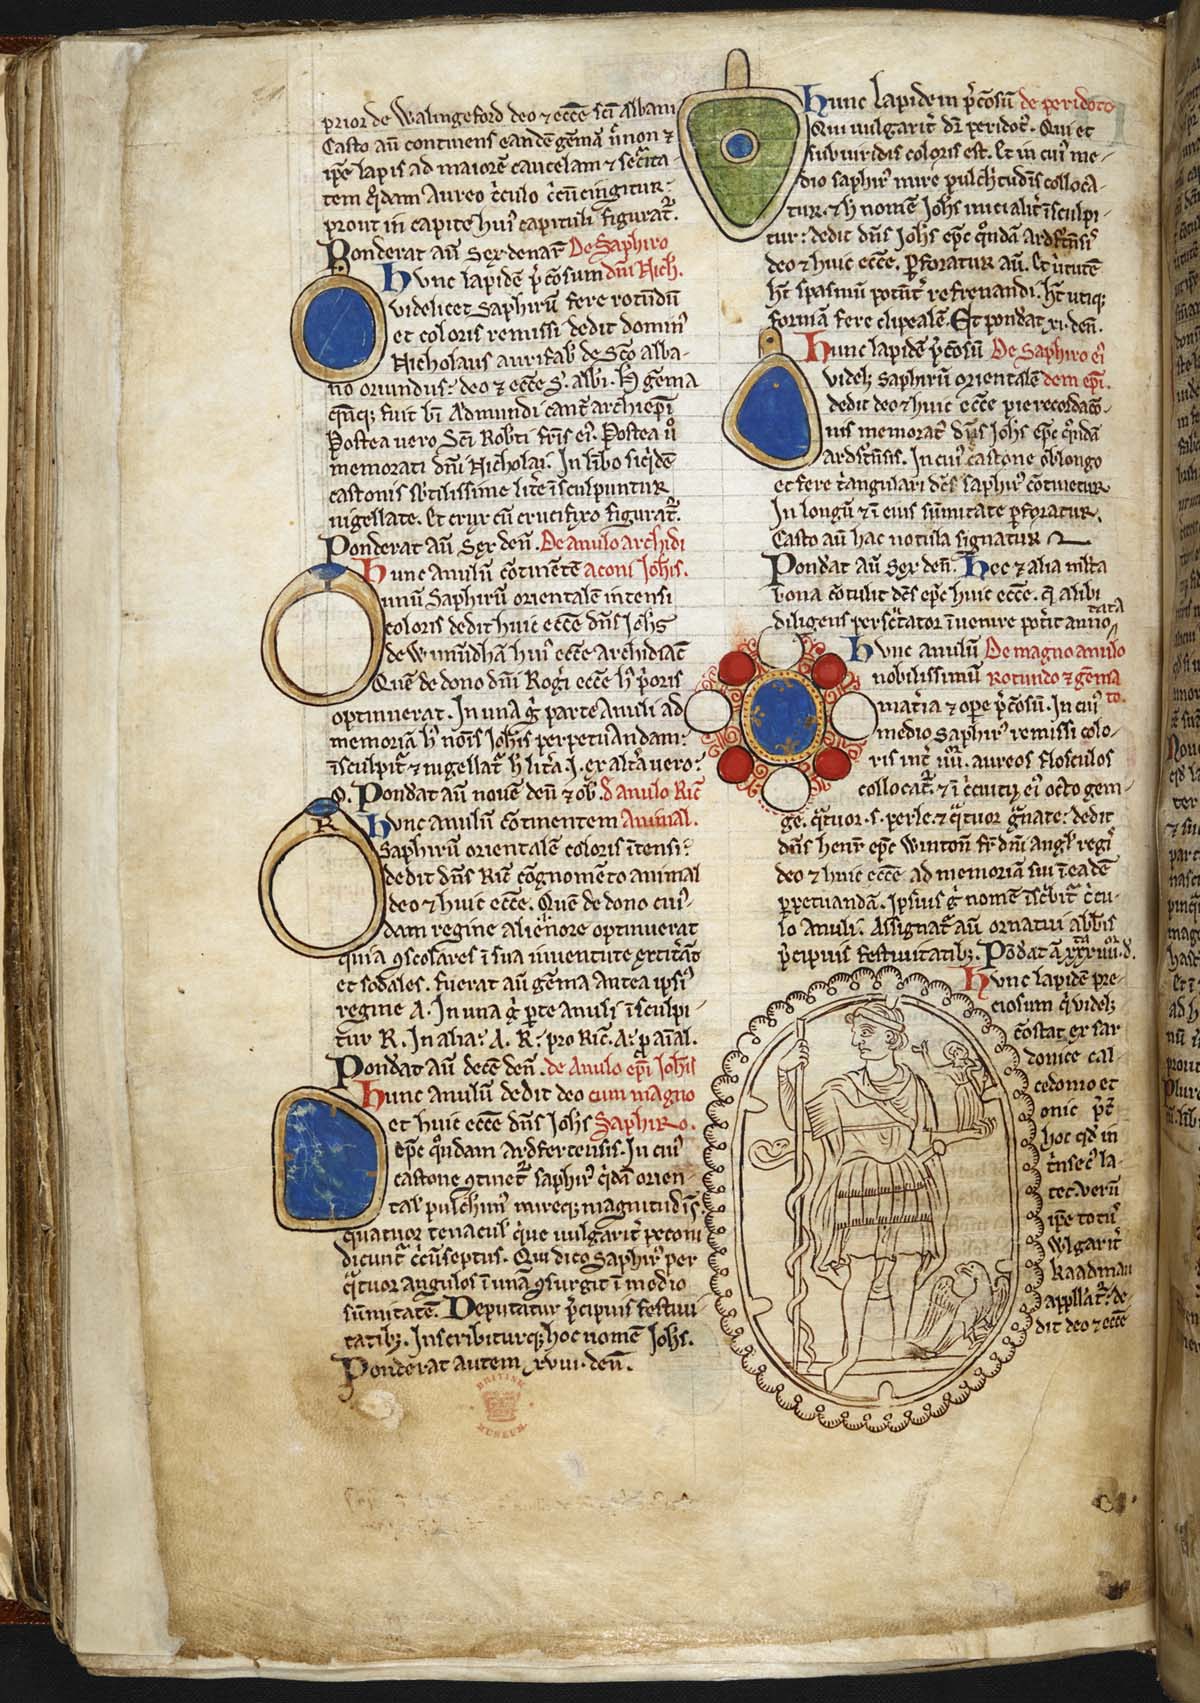 prior de Walingeford deo ⁊ ecc̄e sc̄i Albani
Casto aū continens eandē gem̄ā
ip̄e lapis ad maiorē cautelam ⁊ sec̄ita-
tem q̄dam aureo c̄culo c̄cūcingitur:
prout in capite hui᷒ capituli figurat᷑.
Ponderat aū Sex denar̄ De Saphiro
Hunc lapidē p̄cōsum dn̄i Nich.
videlicet Saphirū fere rotūdū
et coloris remissi dedit domin᷒
Nicholaus aurifab᷑ de Sc̄o alba-
no oriundus: deo ⁊ ecc̄e S. alb̄i. H̄ gēma
Admundi cant᷑ archiep̄i
Postea uero Sc̄i Rob̄ti fr̄is ei᷒. Postea u᷒o
memorati dn̄i Nicholai. In līb̄o siq̄dē
castonis sb̄tilissime litt̄e īsculpuntur
nigellate. Et crux cū crucifixo figurat᷑.
Ponderat aū Sex den̄. De anulo archidi
Hunc anulū cōtinētē aconi Joh̄is.
unū Saphirū orientalē intensi
coloris dedit huic ecc̄e dn̄s Joh̄s
de Wimūdhā hui᷒ ecc̄e archidiac̄
Quē de dono dn̄i Rog̾i ecc̄e h᷒ p̄oris
optinuerat. In una g̾ parte anuli ad
memoriā h᷒ nōis Joh̄is perpetuandam:
īsculpit᷑ ⁊ nigellat᷑ h̄ litt̄a J. ex alt̄a uero:
O. Pond̾at aū nouē den̄ ⁊ ob̾. d̾ anulo Ric̄
Hunc anulū cōtinentem Animal.
Saphirū orientalē coloris ītensi:
dedit dn̄s Ric̄ cōgnomēto animal
deo ⁊ huic ecc̄e. Quē de dono cui᷒-
dam regine alienore optinuerat
quia ꝯscolares ī sua iuuentute extit̄āt
et sodales. fuerat aū gēma antea ipsi᷒
regine A. In una g̾ p̄te anuli īsculpi-
tur R. In alia: A. R: pro Ric̄. A: p̄ aīal.
Pond̾at aū decē den̄. de Anulo ep̄i Joh̄is
Hunc anulū dedit deo cum magno
et huic ecc̄e dn̄s Joh̄s Saphiro.
ep̄c q̄ndam Ardfertensis. In cui᷒
castone ꝯtinet᷑ saphir᷒ q̄dā orien-
tal᷑ pulch̾im᷒ mireq; magnitud̄is.
quatuor tenacul᷑ que uulgarit̾ peconi
dicunt᷑ c̄cūseptus. Qui dic̄o Saphir᷒ per
q̄tuor angulos ī unā ꝯsurgit ī medio
sūmitatē. Deputatur p̄cipuis festiui-
tatib;. Inscribiturq; hoc nomen Joh̄s.
Ponderat autem xviii. den̄.
R
BRITISH
MUSEUM
Hunc lapidem p̄cōsū de peridoto
Qui uulgarit̾ dr̄ peridot᷒. Qui et
subuiridis coloris est. Et in cui᷒ me-
dio saphir᷒ mire pulch̾tudīs colloca-
tur. ⁊ h̄ nomē Joh̄s inicialit̾ īsculpi-
tur: dedit dn̄s Joh̄s ep̄c q̄ndā Ardf̾tn̄sis
deo ⁊ huic ecc̄e. Pforatur aū. Et ū̾tutē
h̄t spasmū potūt̾ refrenandi. h̄t utiq;
formā fere clipealē. Et pond̾at xi. den̄.
Hunc lapidē p̄cōsū De Saphiro ei᷒
videl; saphirū orientalē dem ep̄i.
dedit deo ⁊ huic ecc̄e pie recordacō-
nis memorat᷒ dn̄s Joh̄s ep̄c q̄ndā
Ardf̾tn̄sis. In cui᷒ castone oblongo
et fere t̄angulari dc̄s saphir᷒ cōtinetur
In longū ⁊ ī eius sūmitate pforatur.
Casto aū hac notula signatur
Pond̾at aū Sex den̄. Hec ⁊ alia ml̄ta
bona cōtulit dc̄s ep̄c huic ecc̄e. q̄ alibi
diligens perscr̄tator īuenire pot̾it anno-
tata
Hunc anulū De magno anulo
nobilissimū rotundo ⁊ gēma
mat̾ia ⁊ ope p̄cōsū. In cui᷒ to.
medio saphir᷒ remissi colo-
ris int̾ iiii. aureos flosculos
collocat᷑. ⁊ ī c̄cuitu ei᷒ octo gem-
ge. q̄tuor. s. perle. ⁊ q̄tuor g̾nate: dedit
dn̄s henr̄ ep̄c Winton̄ fr̄ dn̄i angl᷑ regi᷒
deo ⁊ huic ecc̄e ad memoriā sui ī eadē
ppetuandā. Ipsius g̾ nomē īsc̾bit᷑ c̄cu-
lo anuli. Assignat᷑ aū ornatui abb̄is
p̄cipuis festiuitatib;.
Hunc lapidē pre-
ciosum q̾ videl;
cōstat ex sar
donice cal-
cedonio et
onic
hoc q̾d in
t̾nsec᷒ la-
tet. verū
ip̄e tot᷒
wlgarit̾
kaadmau
appll̄at᷑. de-
dit deo ⁊ ecc̄e